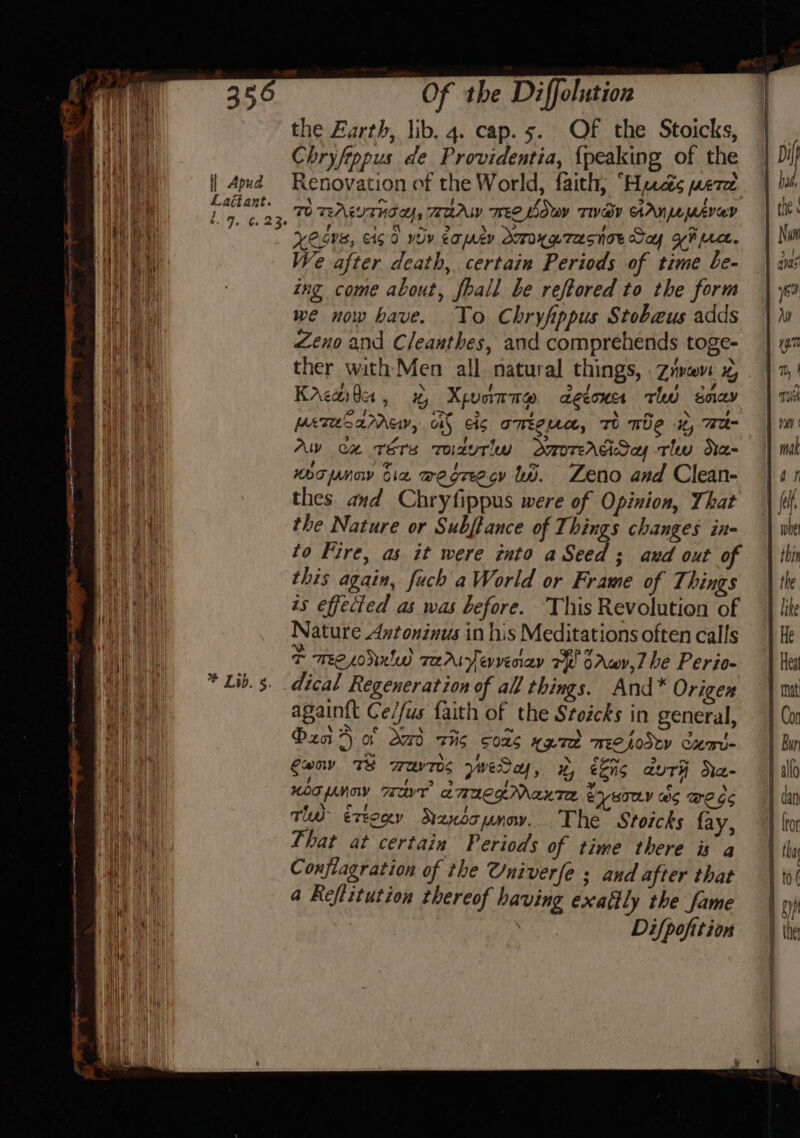 356 Of the Diſſolution
the Earth, lib. 4. cap. 5. Of the Stoicks,
Chryſippus de Providentia, ſpeaking of the
|| Apud Renovation of the World, ſaith, Ἡμᾶς μετὰ
Lactant. τὸ τελευτῆσαι, πάλιν περιόδων τινῶν εἰλημμένων
l. 7. c. 23. χρόνου, εἰς ὃ νῦν ἐσμὲν ἀποκαταστήσεσθαι σχῆμα.
We after death, certain Periods of time be-
ing come about, ſhall be reſtored to the form
we now have. To Chryſippus Stobæus adds
Zeno and Cleanthes, and comprehends toge-
ther with Men all natural things, Ζήνωνι καὶ
Κλεάνθει, καὶ Χρυσίππῳ ἀρέσκει τὴν οὐσίαν
μεταβάλλειν, οἷον εἰς σπέρμα, τὸ πῦρ καὶ πά-
λιν ἐκ τούτου τοιαύτην ἀποτελεῖσθαι τὴν δια-
κόσμησιν οἵα πρότερον ἦν. Zeno and Clean-
thes and Chryſippus were of Opinion, That
the Nature or Subſtance of Things changes in-
to Fire, as it were into a Seed ; and out of
this again, ſuch a World or Frame of Things
is effected as was before. This Revolution of
Nature Antoninus in his Meditations often calls
τὴν περιοδικὴν παλιγγενεσίαν τῶν ὅλων, The Perio-
* Lib. 5. dical Regeneration of all things. And * Origen
againſt Celſus ſaith of the Stoicks in general,
Φασὶ δὲ οἱ ἀπὸ τῆς στοᾶς κατὰ περίοδον ἐκπύ-
ρωσιν τοῦ παντὸς γίνεσθαι, καὶ ἑξῆς αὐτῇ δια-
κόσμησιν πάντ᾽ ἀπαράλλακτα ἔχουσαν ὡς πρὸς
τὴν ἑτέραν διακόσμησιν. The Stoicks ſay,
That at certain Periods of time there is a
Conflagration of the Univerſe ; and after that
a Reſtitution thereof having exactly the ſame
Diſpoſition